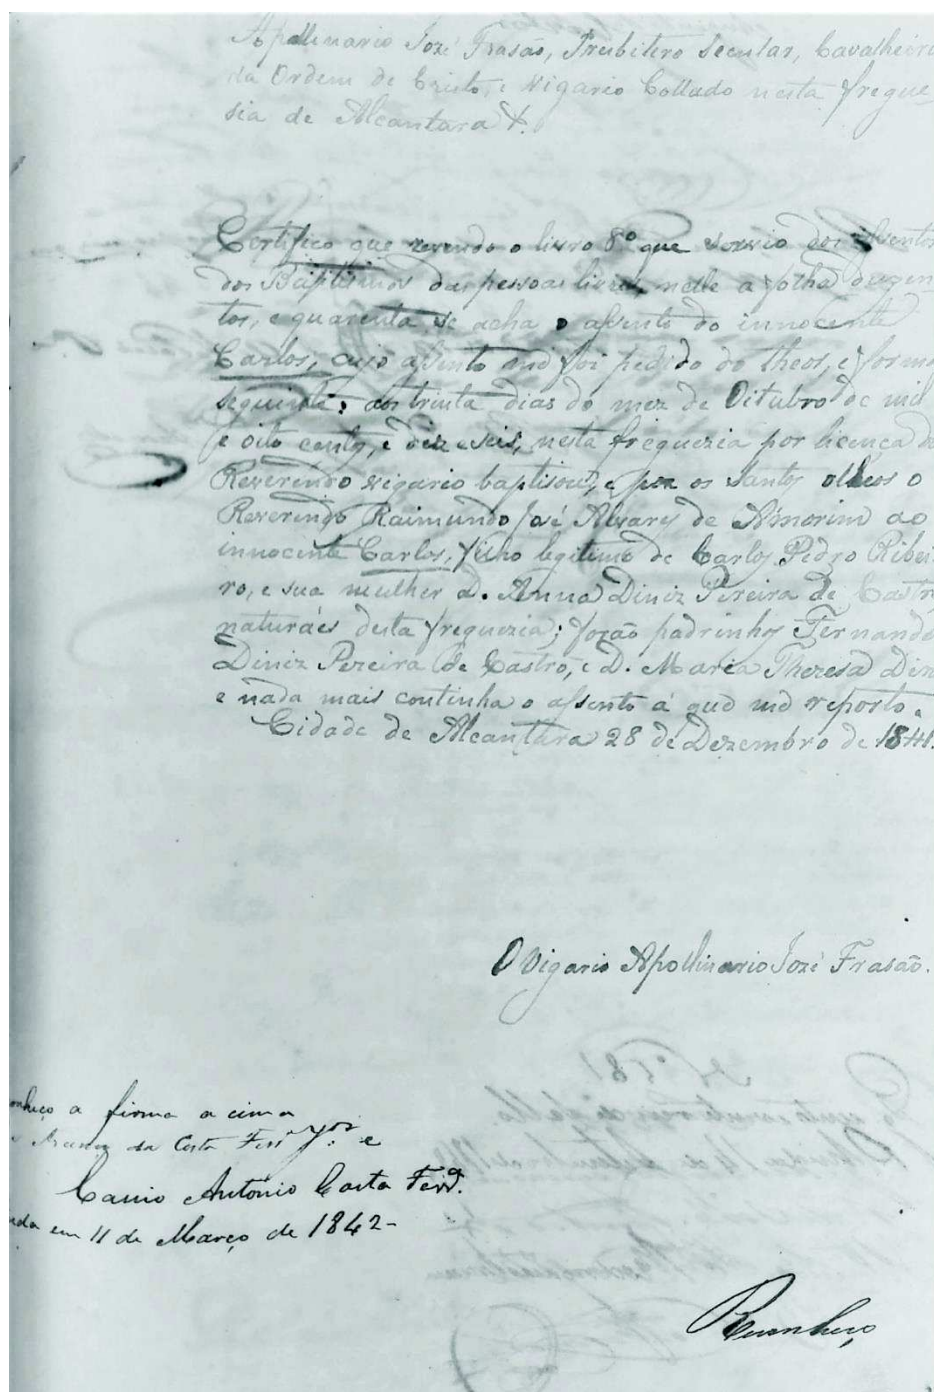 Apollinario Jozé Frasão, Presbitero Secular, Cavalheiro
da Ordem de Cristo, e Vigario Collado nesta fregue-
sia de Alcantara &.
Certifico que revendo o livro 8º que servio dos assentos
dos Baptismos das pessoas livres, nelle a folha duzen
tos, e quarenta se acha o assento do innocente
Carlos, cujo assento me foi pedido do theor, e forma
seguinte: aos trinta dias do mez de Oitubro de mil
e oito centos, e deze seis, nesta freguezia por licença do
Reverendo vigario baptisou, e poz os Santos olleos o
Reverendo Raimundo José Alvares de Amorim ao
innocente Carlos, filho legitimo de Carlos Pedro Ribei
ro, e sua mulher D. Anna Diniz Pereira de Castro
naturáes desta freguezia; forão padrinhos Fernando
Diniz Pereira de Castro, e D. Maria Thereza Diniz
e nada mais continha o assento á que me reporto.
Cidade de Alcantara 28 de Dezembro de 1841.
O Vigario Apollinario Jozé Frasão.
a firma a cima
da Costa Ferrª e
Antonio Costa Ferrª.
em 11 de Março de 1842-
Reconheço